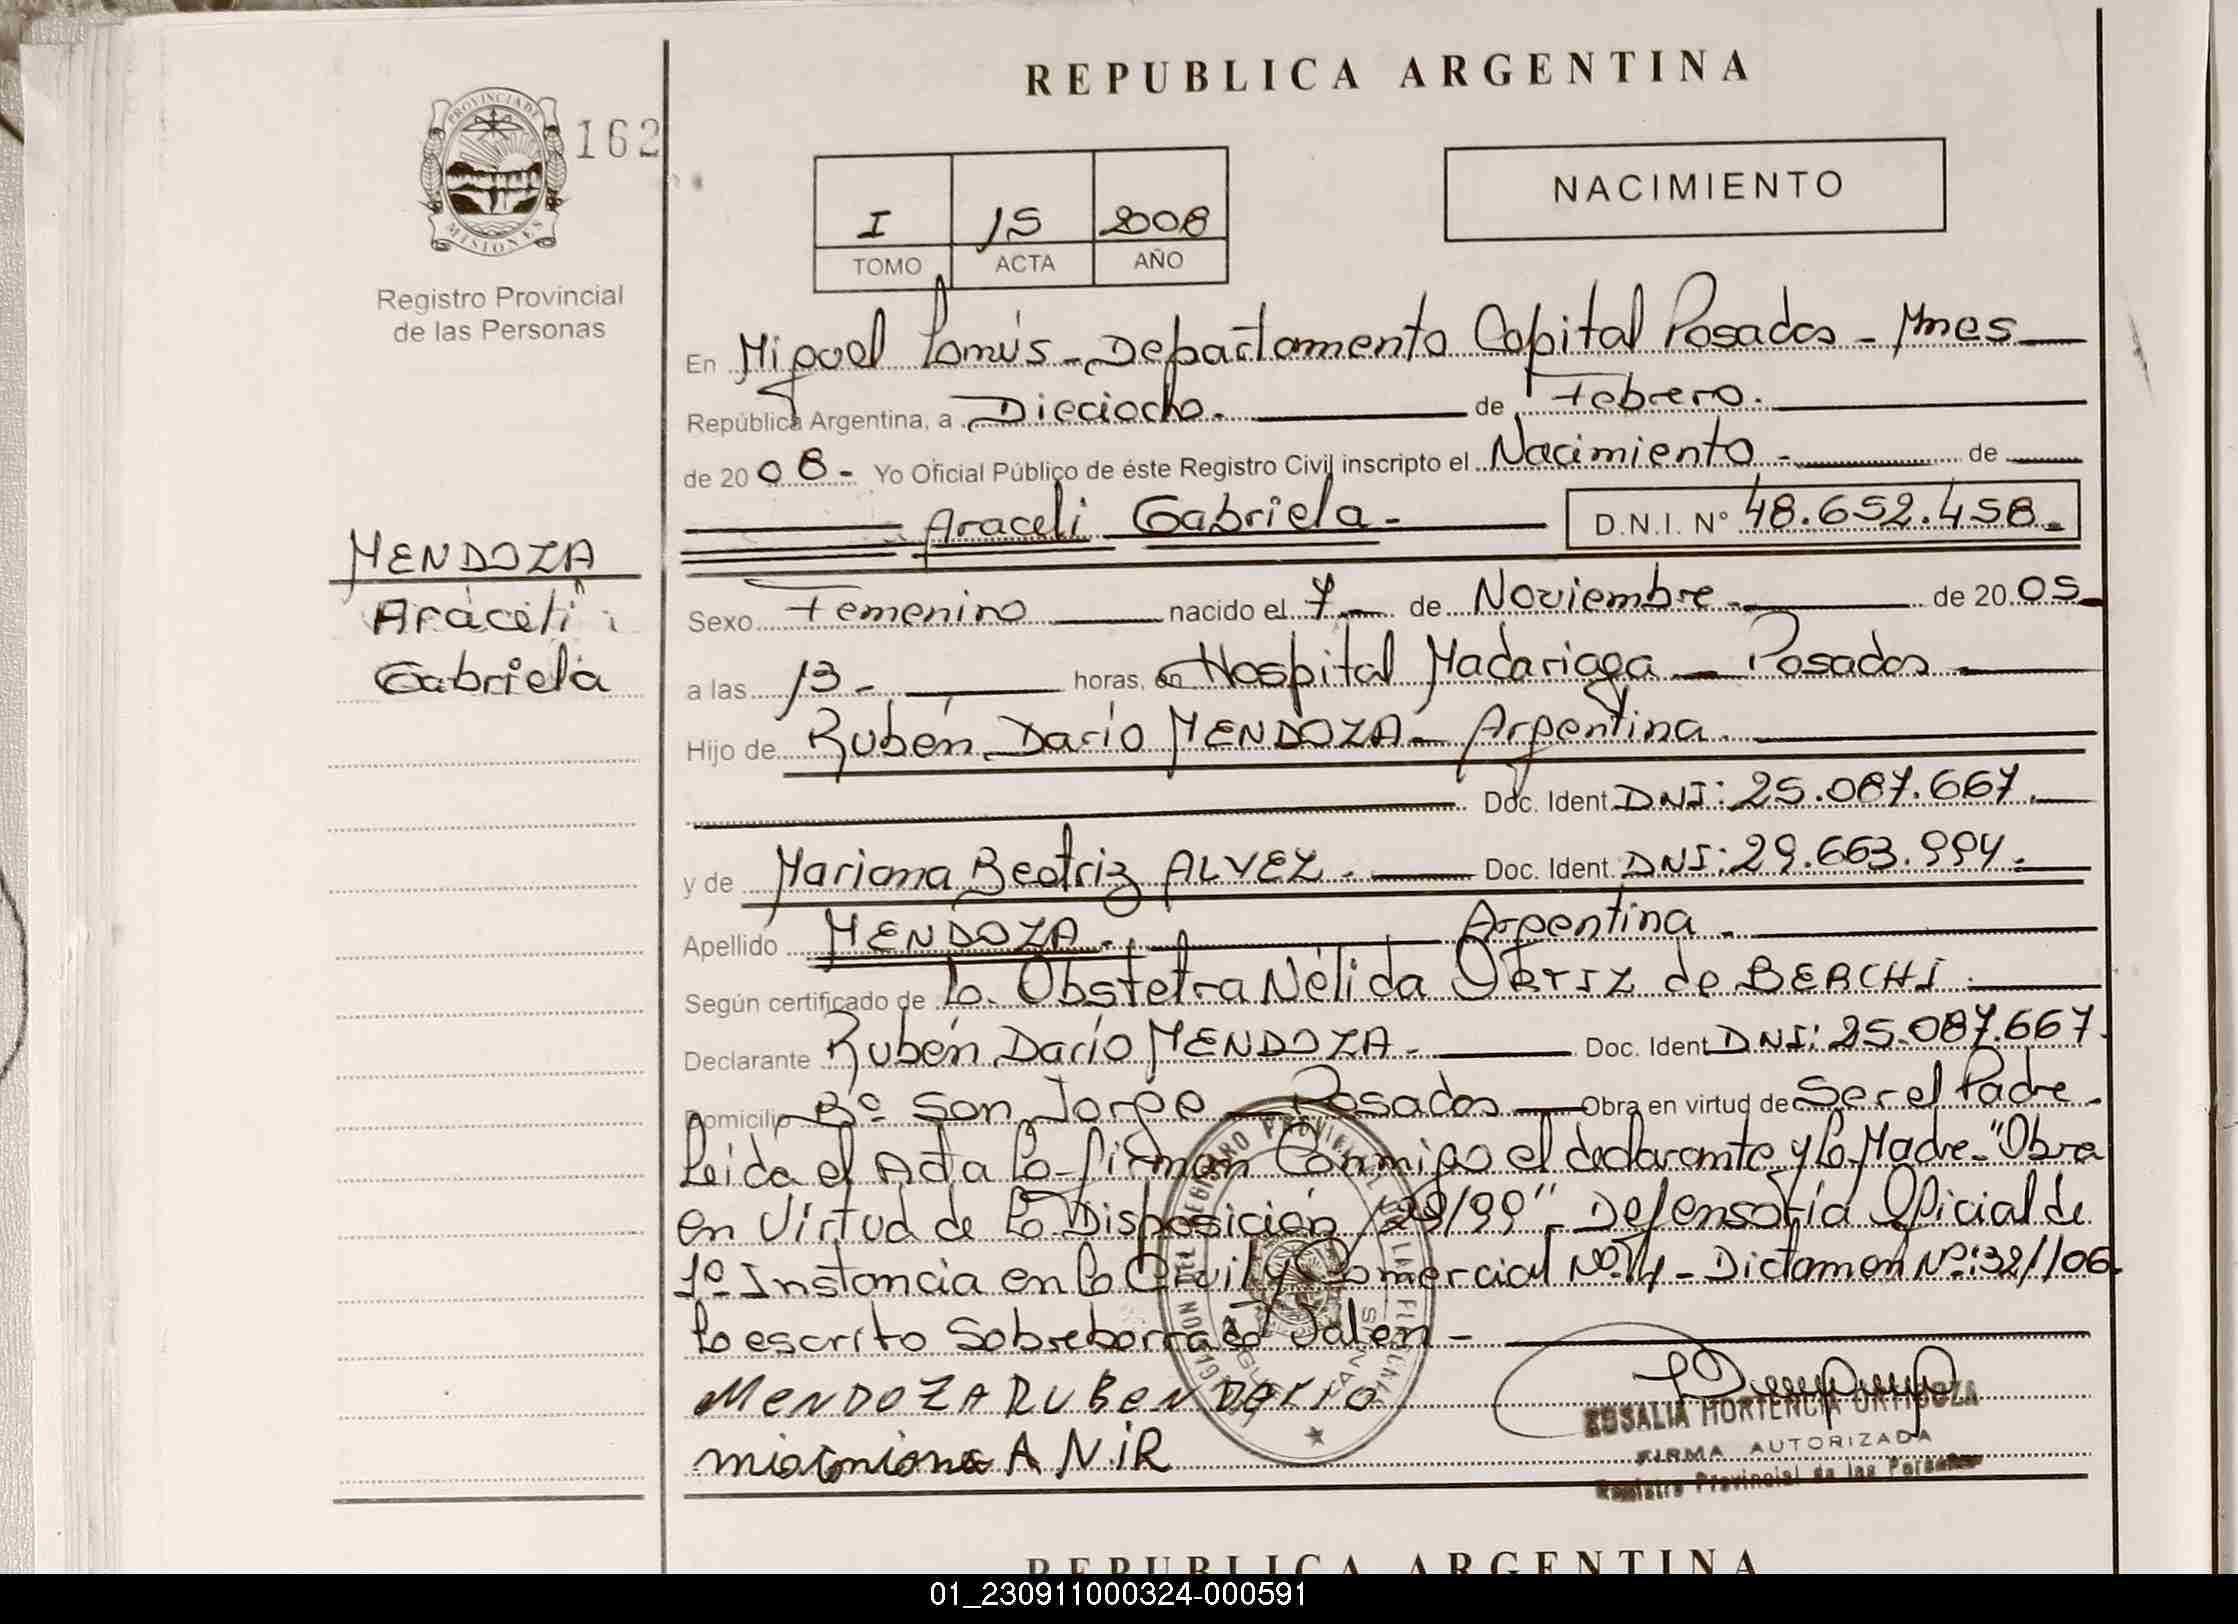 REPUBLICA ARGENTINA
PROVINCIA DE
MISIONES
162
Registro Provincial
de las Personas
I 15 2008
TOMO ACTA AÑO
NACIMIENTO
En Miguel Lanús - Departamento Capital Posadas - Mnes
República Argentina, a Dieciocho. de Febrero.
de 20 08 - Yo Oficial Público de éste Registro Civil inscripto el Nacimiento - de
Araceli Gabriela - D.N.I. Nº 48.652.458.-
MENDOZA
Araceli
Gabriela
Sexo Femenino nacido el 7 de Noviembre - de 20 05
a las 13 - horas, en Hospital Madariaga - Posadas -
Hijo de Rubén Darío MENDOZA - Argentina.
Doc. Ident. DNI: 25.087.667.
y de Mariana Beatriz ALVEZ. - Doc. Ident. DNI: 29.663.994.-
Apellido MENDOZA. - Argentina -
Según certificado de la Obstetra Nélida ORTIZ de BERCHI
Declarante Rubén Darío MENDOZA - Doc. Ident DNI: 25.087.667.
Domicilio Bº San Jorge - Posadas - Obra en virtud de Ser el Padre.
Leida el Acta la firman Conmigo el declarante y la Madre - "Obra
en Virtud de la Disposición 29/99" - Defensoría Oficial de
1º Instancia en lo Civil y Comercial Nº: - Dictamen Nº:
lo escrito Sobreborrado Valen -
MENDOZA RUBEN DARIO
ROSALIA HORTENCIA
FIRMA AUTORIZADA
Registro Provincial de las Personas
REPUBLICA ARGENTINA
01_230911000324-000591